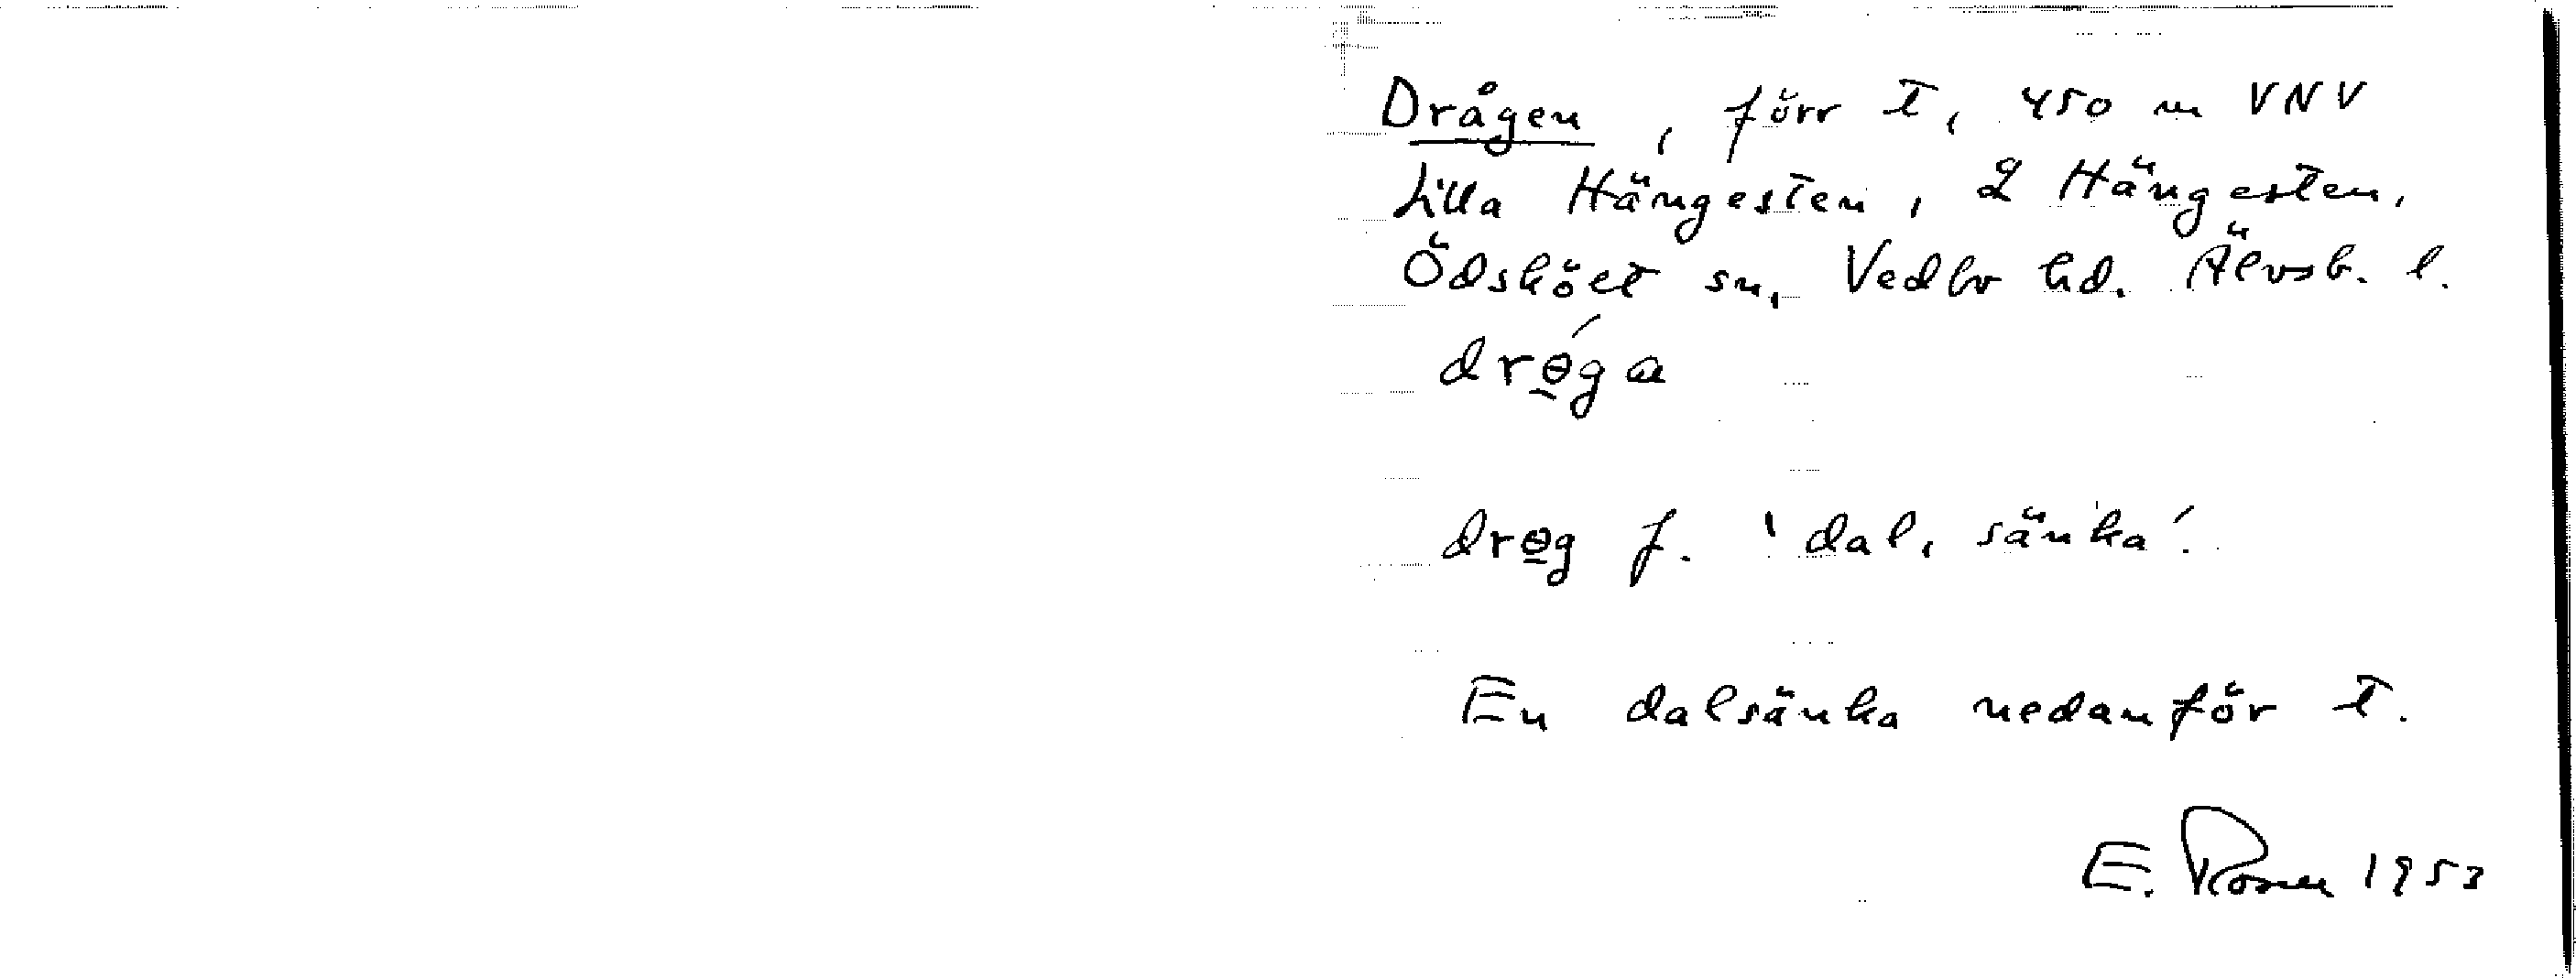 Drågen, förr T, 450 m VNV
Lilla Hängesten, 2 Hängesten,
Ödskölt sn, Vedbo hd. Älvsb. l.
drɵ́ga
drɵg f. 'dal, sänka'.
En dalsänka nedanför T.
E. Rosen 1953